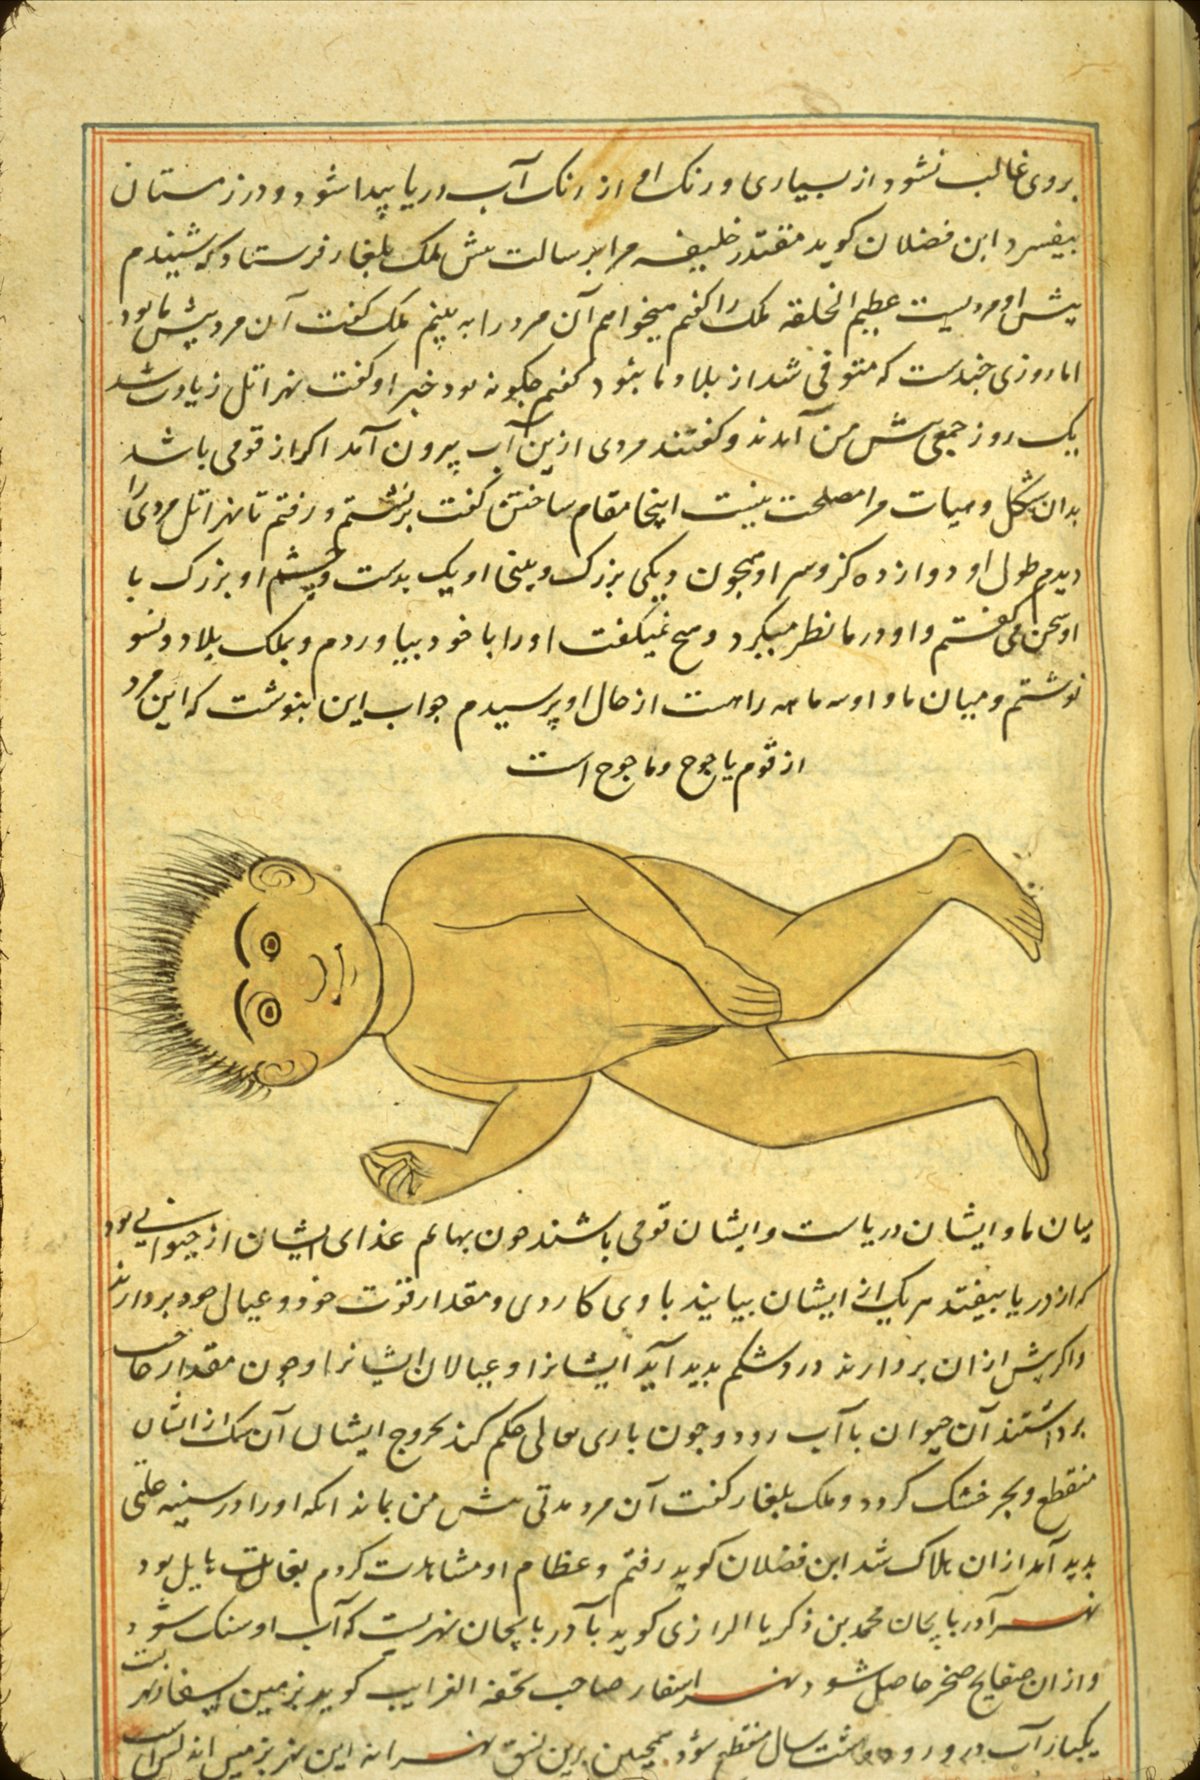 بروی غالب نشود از بسیاری و رنک او از رنک آب دریا پیدا شود و در زمستان
بیفسرد ابن فضلان کوید مقتدر خلیفه مرا برسالت پیش ملک بلغار فرستاد که شنیدم
پیش او مردیست عظیم الخلقه ملک را کفتم میخواهم آن مرد را به بینم ملک کفت آن مرد پیش ما بود
اما روزی چندست که متوفی شد از بلاد ما نبود کفتم چکونه بود خبر او کفت نهر اتل زیادت شد
یک روز جمعی پیش من آمدند و کفتند مردی ازین آب بیرون آمد اکر از قومی باشد
بدان شکل و هیات مرا مصلحت نیست اینجا مقام ساختن کفت برنشستم و رفتم تا نهر اتل مردی را
دیدم طول او دوازده کز و سر او همچون دیکی بزرک و بینی او یک بدست و چشم او بزرک با
او سخن می کفتم و او در ما نظر میکرد و هیچ نمیکفت او را با خود بیاوردم و بملک بلاد
نوشتم و میان ما و او سه ماهه راهست از حال او پرسیدم جواب این بنوشت که این مرد
از قوم یاجوج و ماجوج است
میان ما و ایشان دریاست و ایشان قومی باشند چون بهایم غذای ایشان از حیوانی بود
که از دریا بیفتد هر یک از ایشان بیایند با وی کاردی و مقدار قوت خود و عیال خود بردارند
و اکر بیش ازان بردارند درد شکم پدید آید ایشانرا و عیالان ایشانرا و چون مقدار حاجت
برداشتند آن حیوان با آب رود و چون باری تعالی حکم کند بخروج ایشان آن سمک از ایشان
منقطع و بحر خشک کردد و ملک بلغار کفت آن مرد مدتی پیش من بماند انکه او را در سینه علتی
پدید آمد ازان هلاک شد ابن فضلان کوید رفتم و عظام او مشاهدت کردم بغایت هایل بود
نهر آدربایجان محمد بن زکریا الرازی کوید بآدربایجان نهریست که آب او سنک شود
و ازان صفایح صخر حاصل شود نهر اسفار صاحب تحفه الغرایب کوید بزمین اسفار نهریست
یکبار آب درو رود هشت سال منقطع شود همچنین برین نسق نهر این نهر بزمین